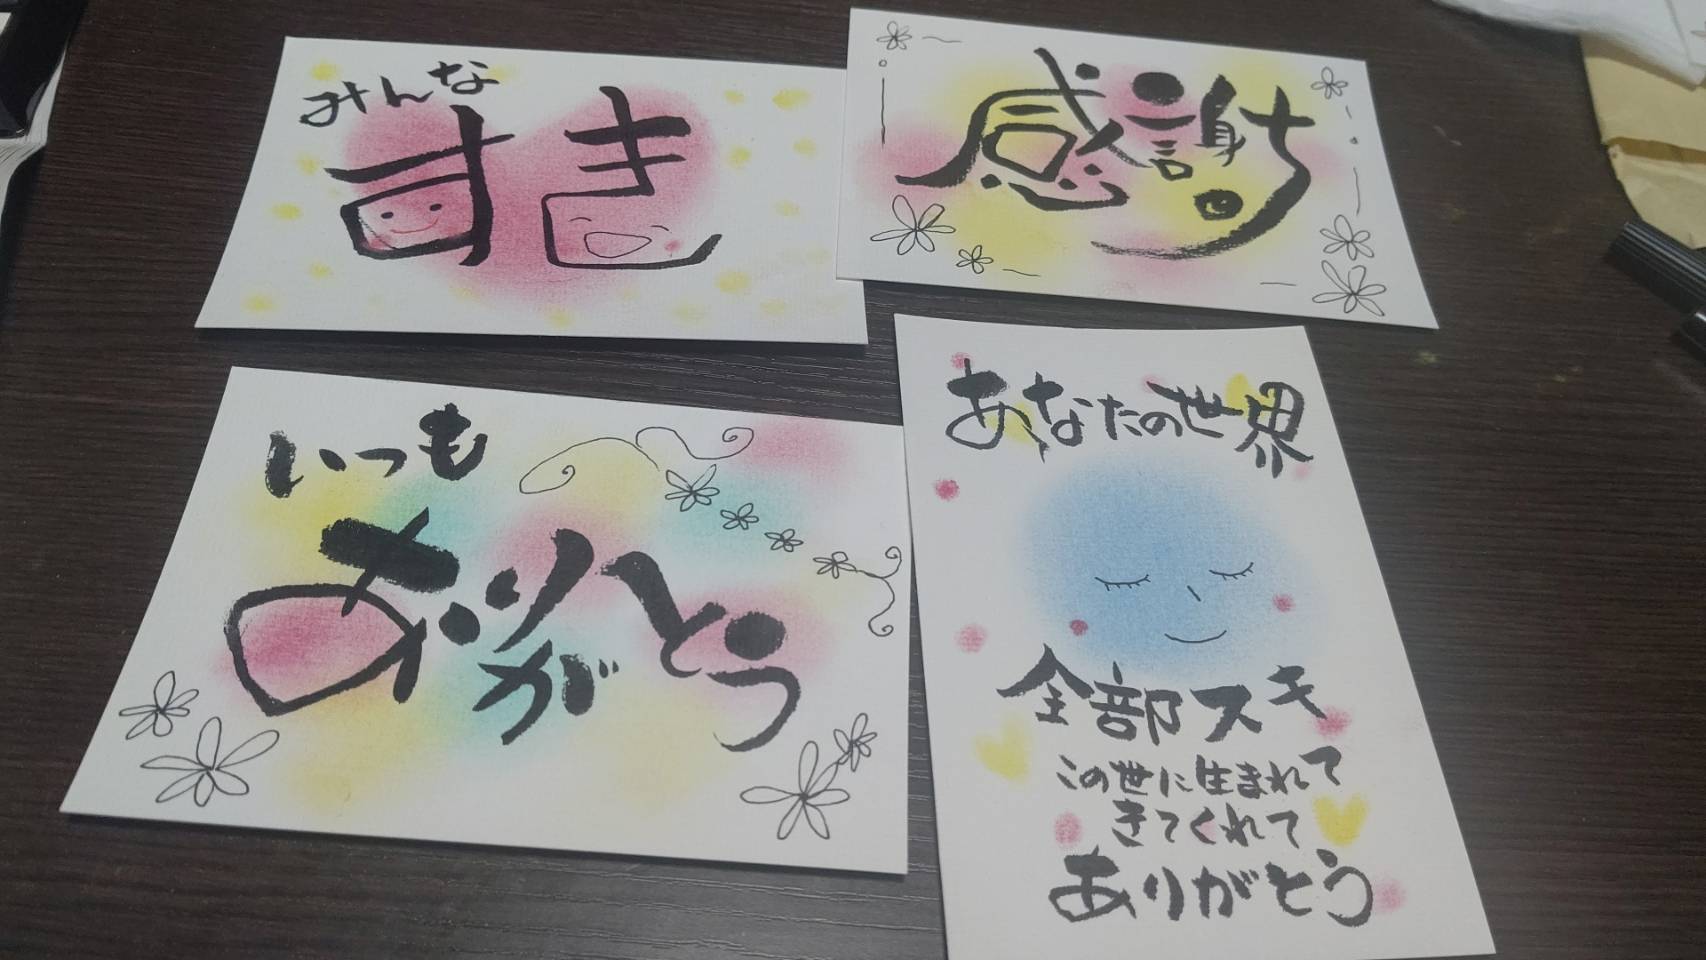 みんな
すき
感謝
いつも
ありがとう
あなたの世界
全部スキ
この世に生まれて
きてくれて
ありがとう